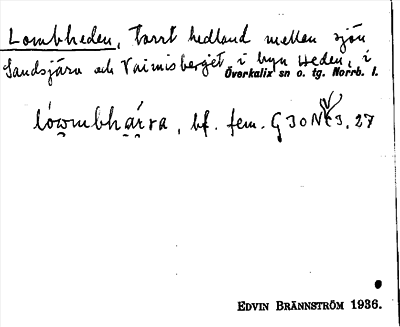 Lombheden, Torrt hedland mellan sjön
Sandsjärv och Vaimisberget i byn Heden, i
Överkalix sn o. tg. Norrb. l.
bf. fem. G30N 3, 27
EDVIN BRÄNNSTRÖM 1936.